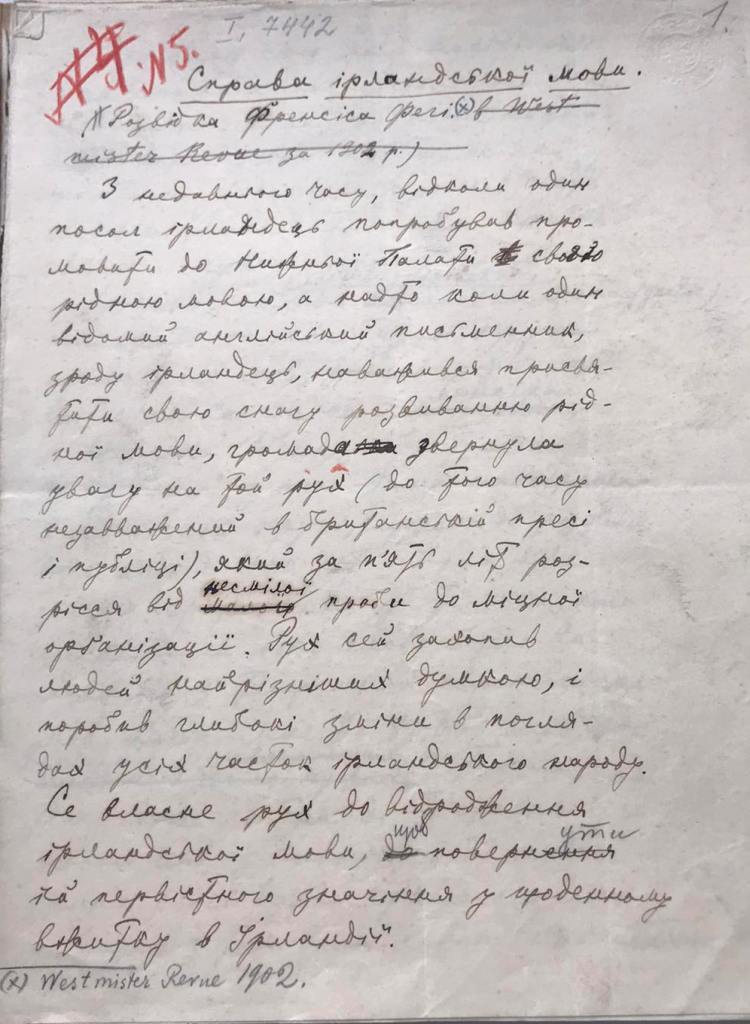 I, 7442
1.
№5.
Справа ірландської мови.
(Розвідка Френсіса Фегі (x) в West
mister Revue за 1902 р.)
З недавнього часу, відколи один
посол ірландець попробував про-
мовити до Нижньої Палати своєю
рідною мовою, а надто коли один
відомий англійський письменник,
зроду ірландець, наважився присвя-
тити свою снагу розвиванню рід-
ної мови, громада звернула
увагу на той рух (до того часу
незавважений в британській пресі
і публіці), який за п'ять літ роз-
рісся від несмілої проби до міцної
орґанізації. Рух сей захопив
людей найрізніших думкою, і
поробив глибокі зміни в погля-
дах усіх часток ірландського народу.
Се власне рух до відродження
ірландської мови, щоб повернути
їй первістного значіння у щоденному
вжитку в Ірландії.
(x) Westmister Revue 1902.